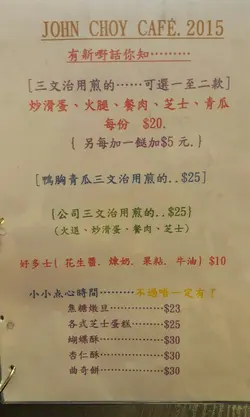 JOHN CHOY CAFÉ. 2015
有新嘢話你知………
[三文治用煎的……可選一至二款]
炒滑蛋、火腿、餐肉、芝士、青瓜
每份 $20.
{ 另每加一餸加$5 元.}
[鴨胸青瓜三文治用煎的..$25]
{公司三文治用煎的..$25}
(火腿、炒滑蛋、餐肉、芝士)
好多士{ 花生醬、煉奶、果醬、牛油} $10
小小点心時間………不過唔一定有?
焦糖燉旦………………$23
各式芝士蛋糕…………$25
蝴蝶酥…………………$30
杏仁酥…………………$30
曲奇餅…………………$30